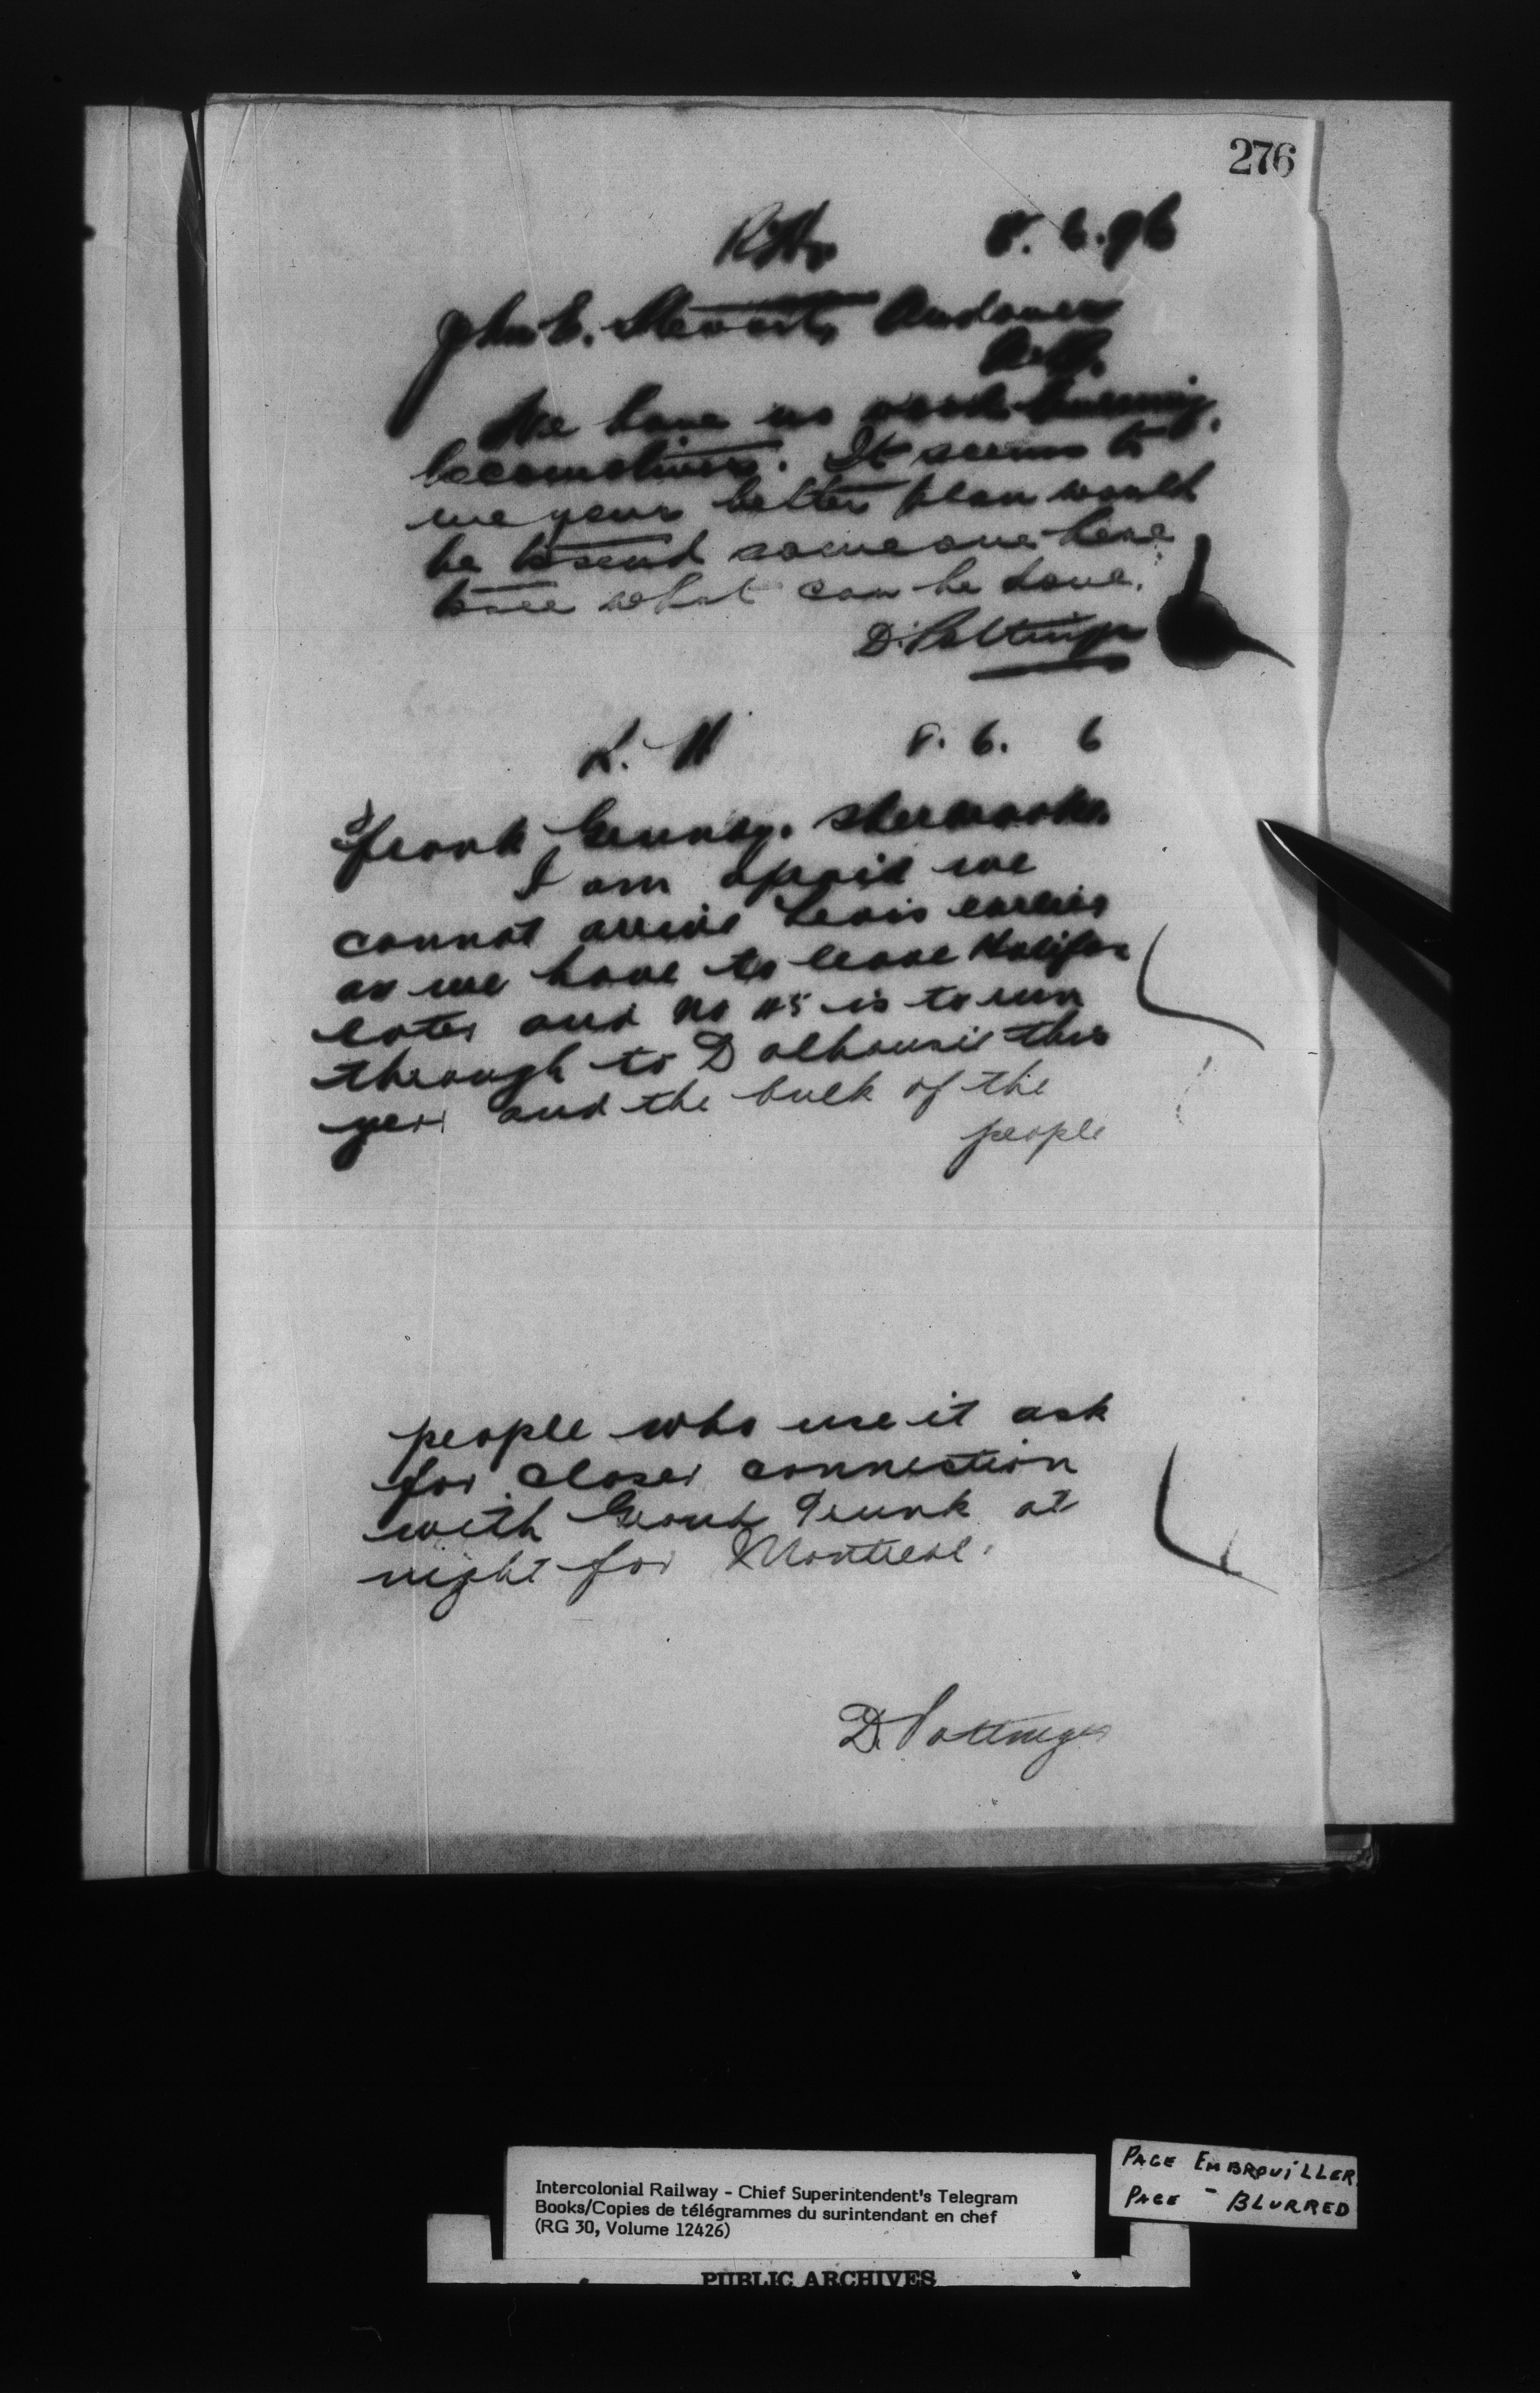 276
8. 6. 96
John E. Stewart, Andover
N.B.
We have no wood burning
locomotives. It seems to
me your better plan would
be to send some one here
to see what can be done.
D. Pottinger
8. 6. 6
Frank Grundy. Sherbrooke.
I am afraid we
cannot arrive Levis earlier
as we have to leave Halifax
later and No is to run
through to Dalhousie this
year and the bulk of the
people
people who use it ask
for closer connection
with Grand Trunk at
night for Montreal.
D. Pottinger
Intercolonial Railway - Chief Superintendent's Telegram
Books/Copies de télégrammes du surintendant en chef
(RG 30, Volume 12426)
PAGE EMBROUILLER
PAGE - BLURRED
PUBLIC ARCHIVES